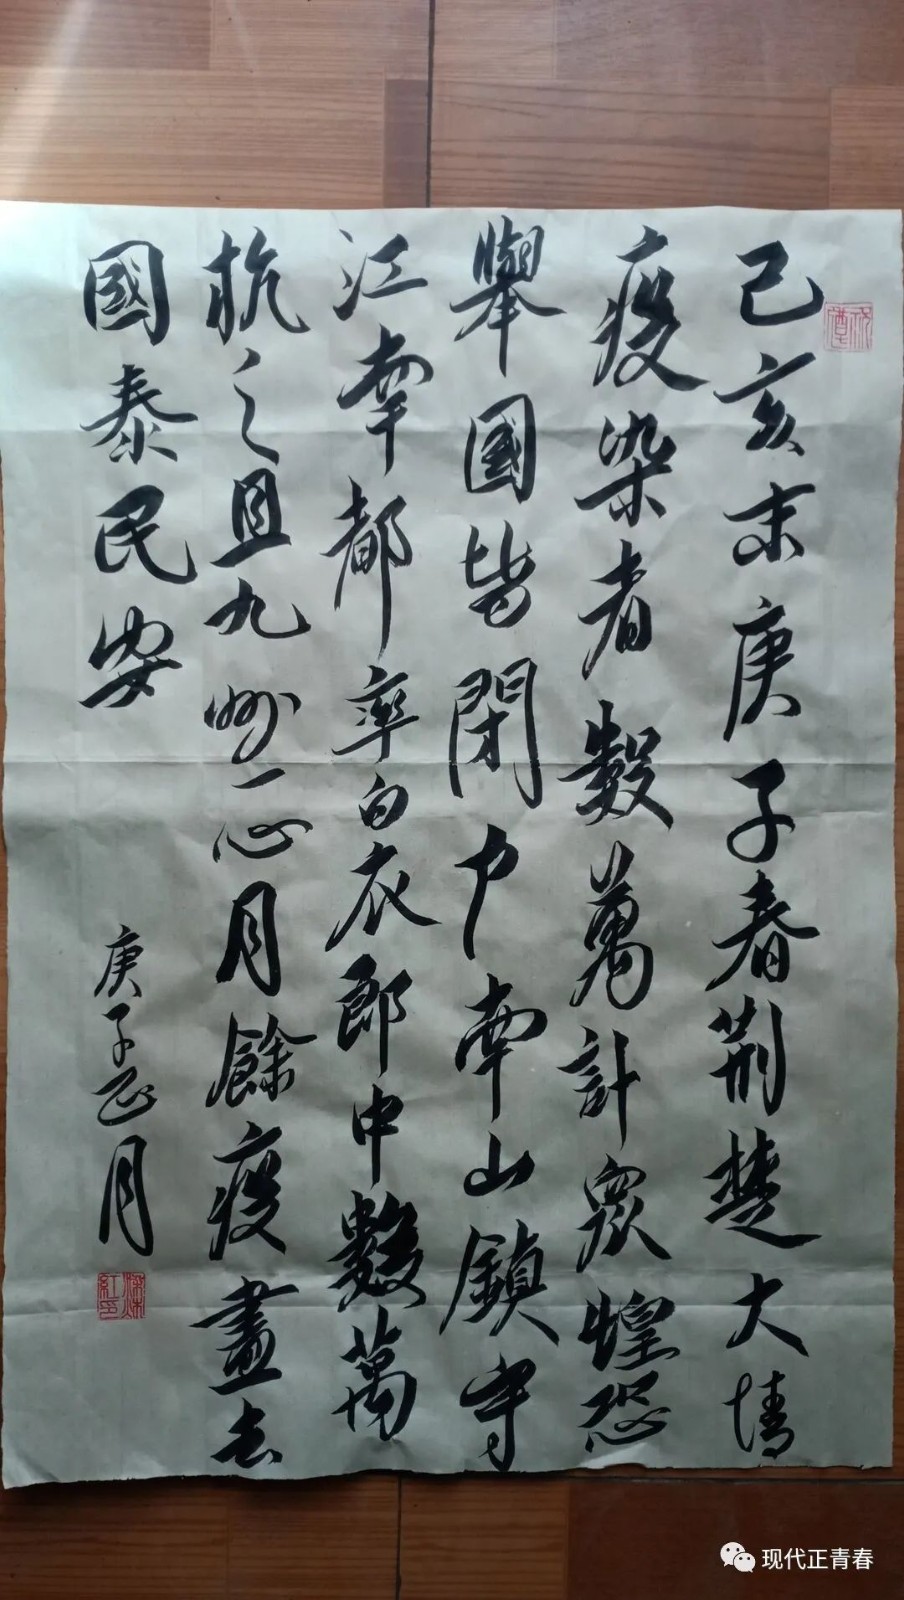 己亥末庚子春荆楚大情
疫染者數萬計眾惶恐
舉國皆閉户南山鎮守
江南都率白衣郎中數萬
抗之且九州一心月餘疫盡去
國泰民安
庚子正月
现代正青春